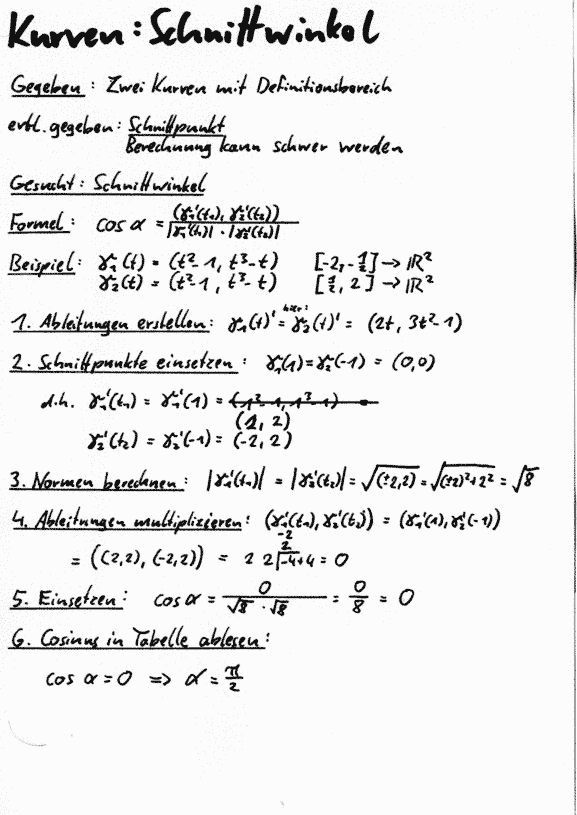 Kurven: Schnittwinkel
Gegeben: Zwei Kurven mit Definitionsbereich
evtl. gegeben: Schnittpunkt
Berechnung kann schwer werden
Gesucht: Schnittwinkel
Formel: cos α = (γ₁'(t₁), γ₂'(t₂)) / |γ₁'(t₁)| · |γ₂'(t₂)|
Beispiel: γ₁(t) = (t²-1, t³-t) [-2, -1/2] → ℝ²
γ₂(t) = (t²-1, t³-t) [1/2, 2] → ℝ²
1. Ableitungen erstellen: γ₁(t)' = hier: γ₂(t)' = (2t, 3t²-1)
2. Schnittpunkte einsetzen: γ₁(1) = γ₂(-1) = (0,0)
d.h. γ₁'(t₁) = γ₁'(1) = (1²-1, 1³-1) =
(2, 2)
γ₂'(t₂) = γ₂'(-1) = (-2, 2)
3. Normen berechnen: |γ₁'(t₁)| = |γ₂'(t₂)| = √(±2,2) = √(±2)²+2² = √8
4. Ableitungen multiplizieren: (γ₁'(t₁), γ₂'(t₂)) = (γ₁'(1), γ₂'(-1))
-2 2
= ((2,2), (-2,2)) = 2 2 | -4+4 = 0
5. Einsetzen: cos α = 0 / √8 · √8 = 0/8 = 0
6. Cosinus in Tabelle ablesen:
cos α = 0 ⇒ α = π/2